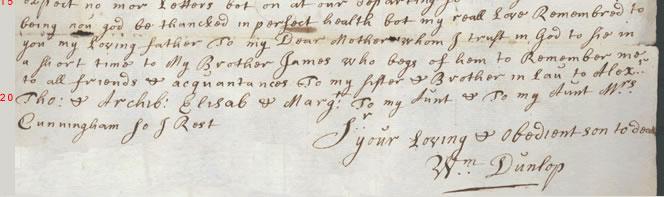 15
expect no mor Letters bot on at our departing
being now god be thancked in perfect health bot my reall Love Remembred to
you my Loving father To my Dear Mother whom I trust in God to sie in
a short time to My Brother James who begs of hem to Remember me
to all friends & acquantances To my sister & Brother in Lau to Alexr:
20
Tho: & Archib: Elisab & Margt: To my Aunt & To my Aunt Mrs
Cunningham so I Rest
Sr your Loving & obedient son to death
Wm: Dunlop